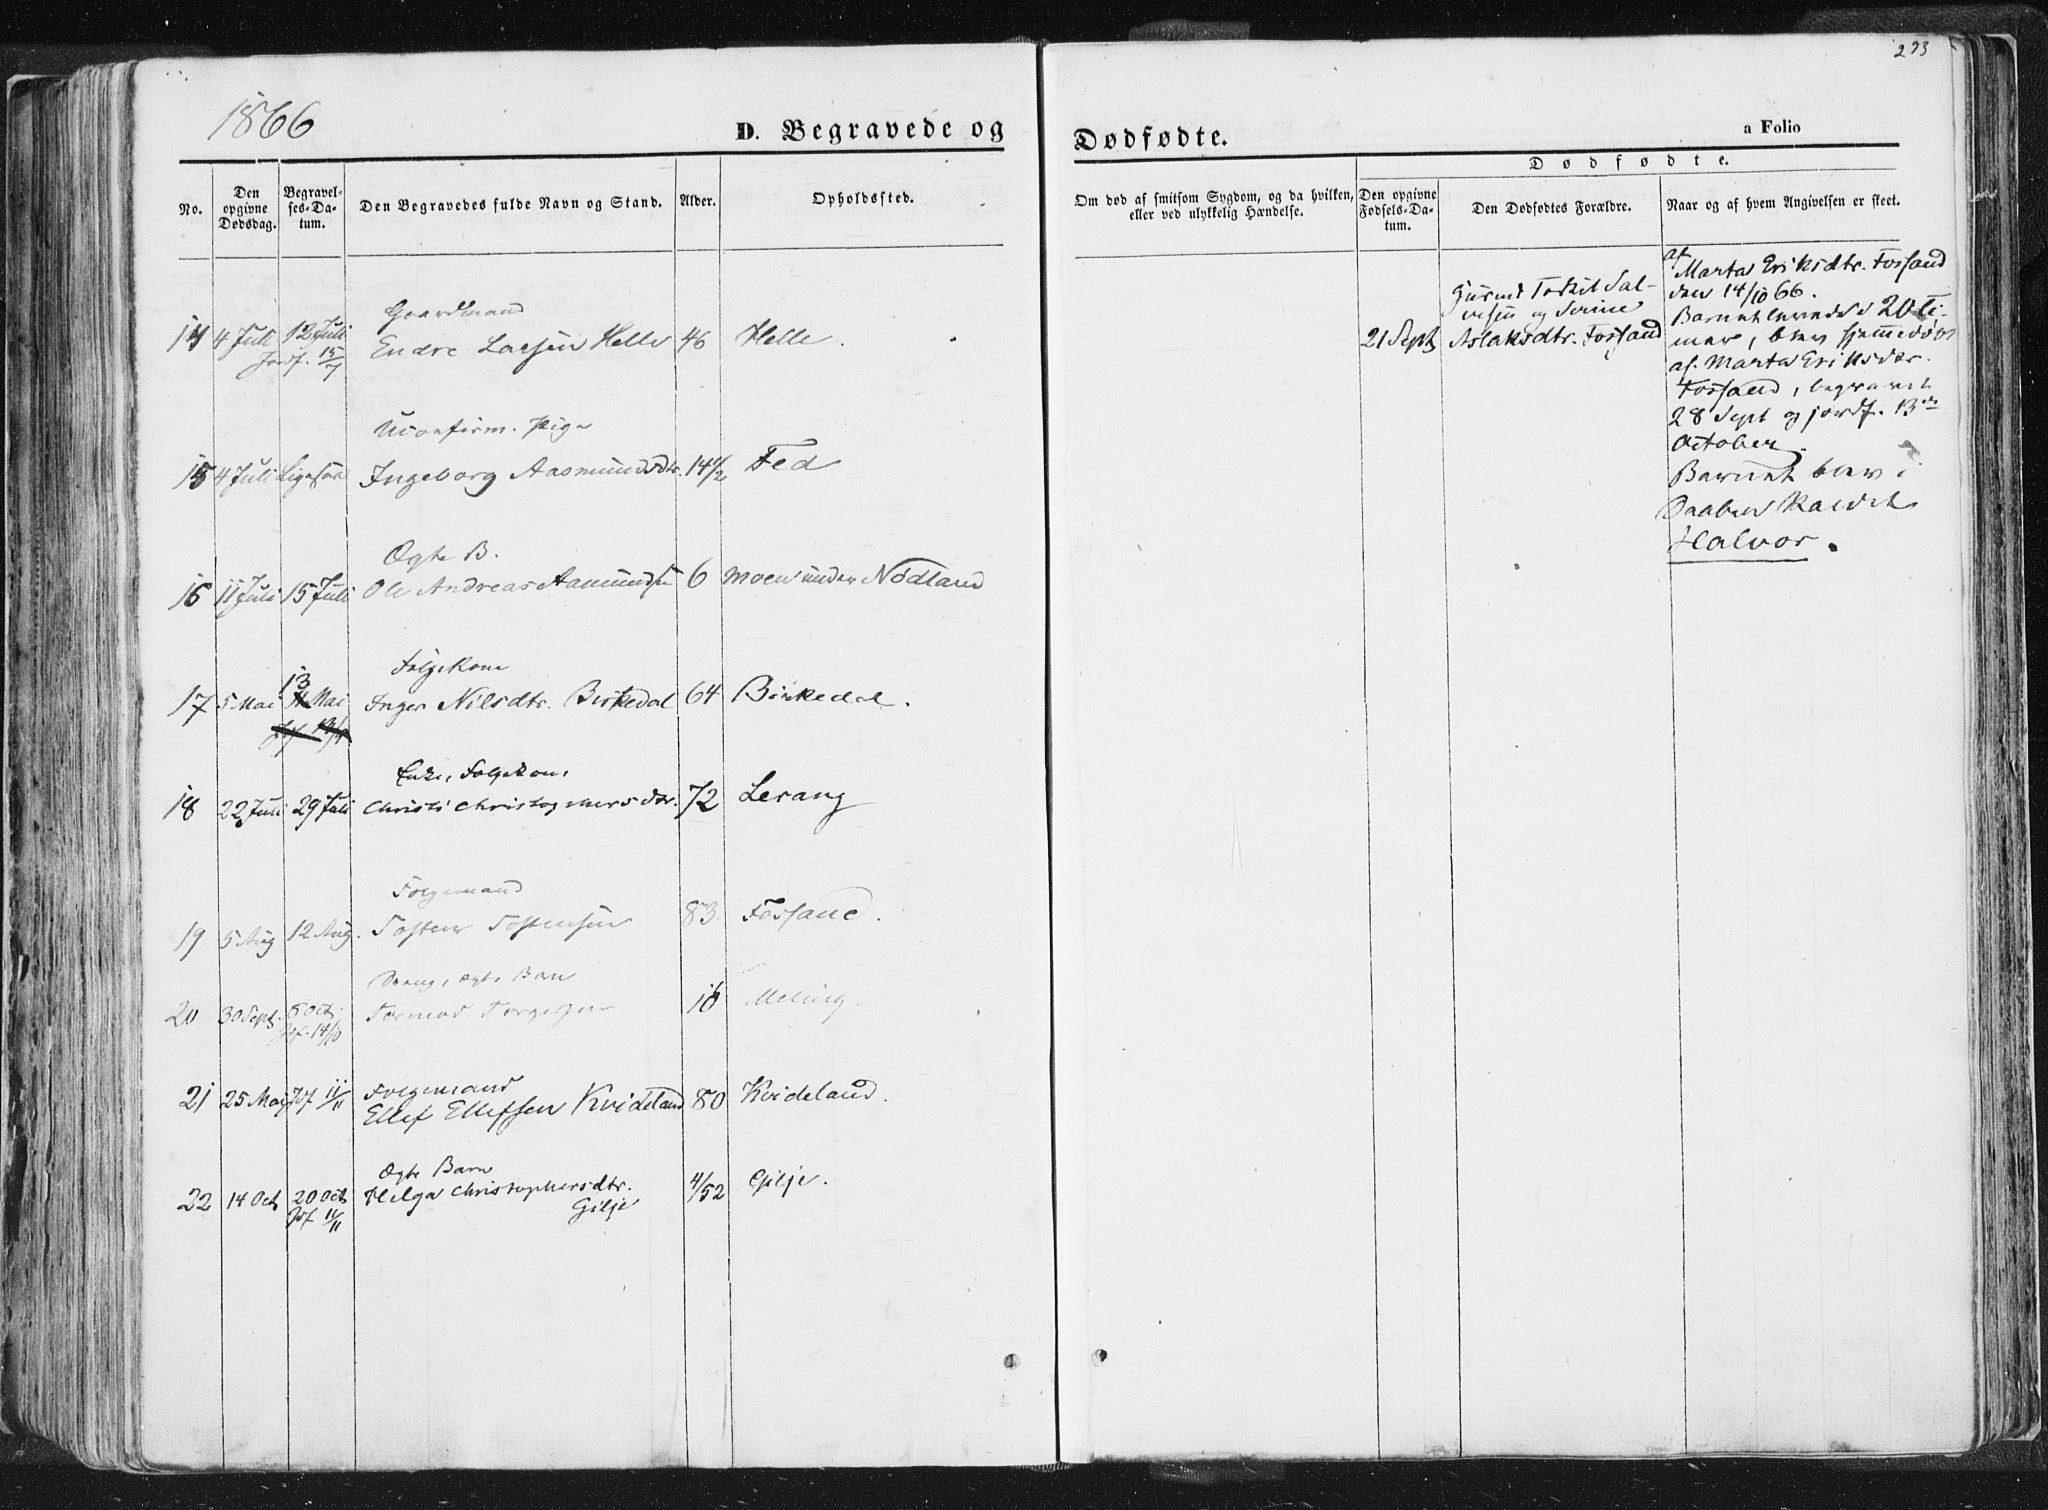 233
1866
D. Begravede og Dødfødte.
a Folio
No.
Den opgivne Dødsdag.
Begravelses-Datum.
Den Begravedes fulde Navn og Stand.
Alder.
Opholdssted.
Om død af smitsom Sygdom, og da hvilken, eller ved ulykkelig Hændelse.
Dødfødte.
Den opgivne Fødsels-Datum.
Den Dødfødtes Forældre.
Naar og af hvem Angivelsen er skeet.
Gaardmand
14 4 Juli 12 Juli Endre Larsen Helle 46 Helle.
Jordf. 15/7
Uconfirm. Pige
15 4 Juli Ingeborg Aasmundsdtr. 14 1/2 Fed
Ægte B.
16 11 Juli 15 Juli Ole Andreas Aamundsen 6 Moen under Nødland
Folgekone
17 5 Mai 13 Mai Inger Nilsdtr. Birkedal 64 Birkedal.
Enke, Folgekone
18 22 Juli 29 Juli Christi Christophersdtr. 72 Lerang
Folgemand
19 5 Aug 12 Aug. Tosten Tostensen 83 Fossand.
Dreng, ægte Barn
20 30 Sept. 6 Oct. Tormod Torgersen 10 Meling.
Jf. 14/10
Folgemand
21 25 Mai Jdf 11/11 Ellef Ellefsen Kvideland 80 Kvideland.
Ægte Barn
22 14 Oct 20 Oct Helga Christophersdtr. 4/52 Gilje.
Jdf 11/11 Gilje
21 Sept
Gaardm. Torkil Sal-
vesen og Serine
Aslaksdtr. Fossand
af
Marta Eriksdtr. Fossand
den 14/10 66.
Barnet levede i 20 Ti-
mer, blev hjemmedøbt
af Marta Eriksdtr.
Fossand, begravet
28 Sept og jordf. 13de
October.
Barnet blev i
Daaben kaldet
Halvor.